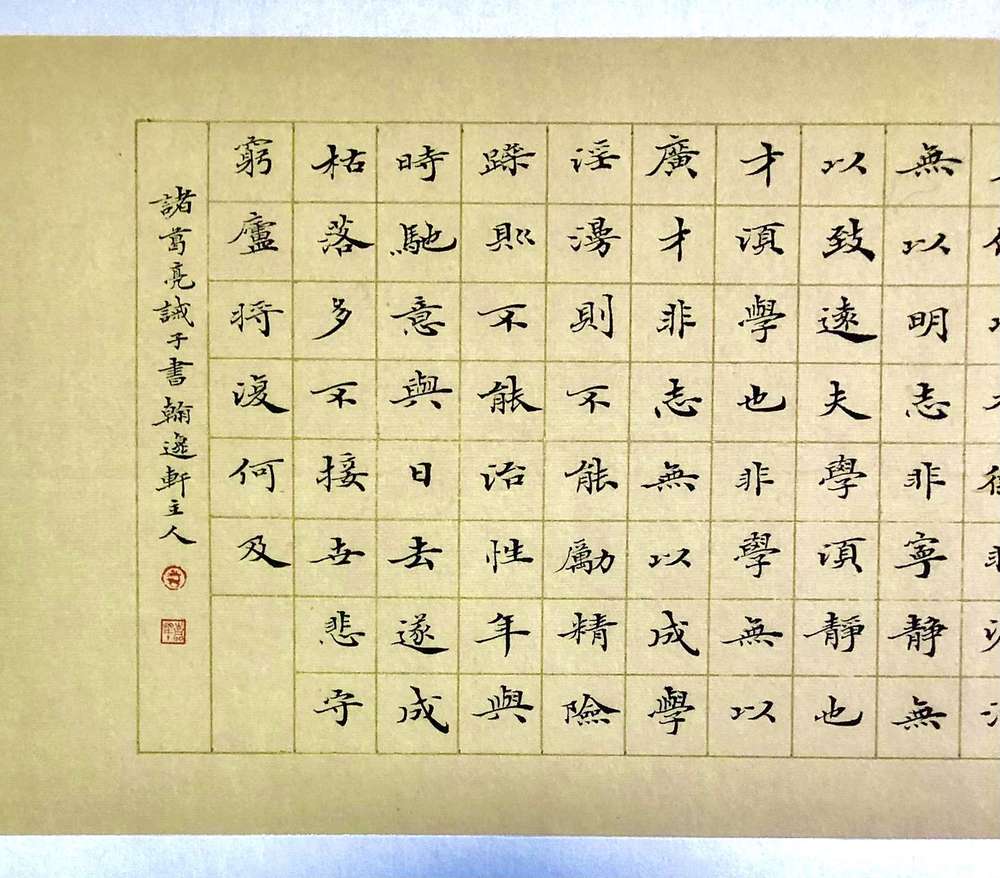 無以明志非寧静無
以致遠夫學須靜也
才須學也非學無以
廣才非志無以成學
淫漫則不能勵精險
躁則不能治性年與
時馳意與日去遂成
枯落多不接世悲守
窮廬將復何及
諸葛亮誡子書翰逸軒主人